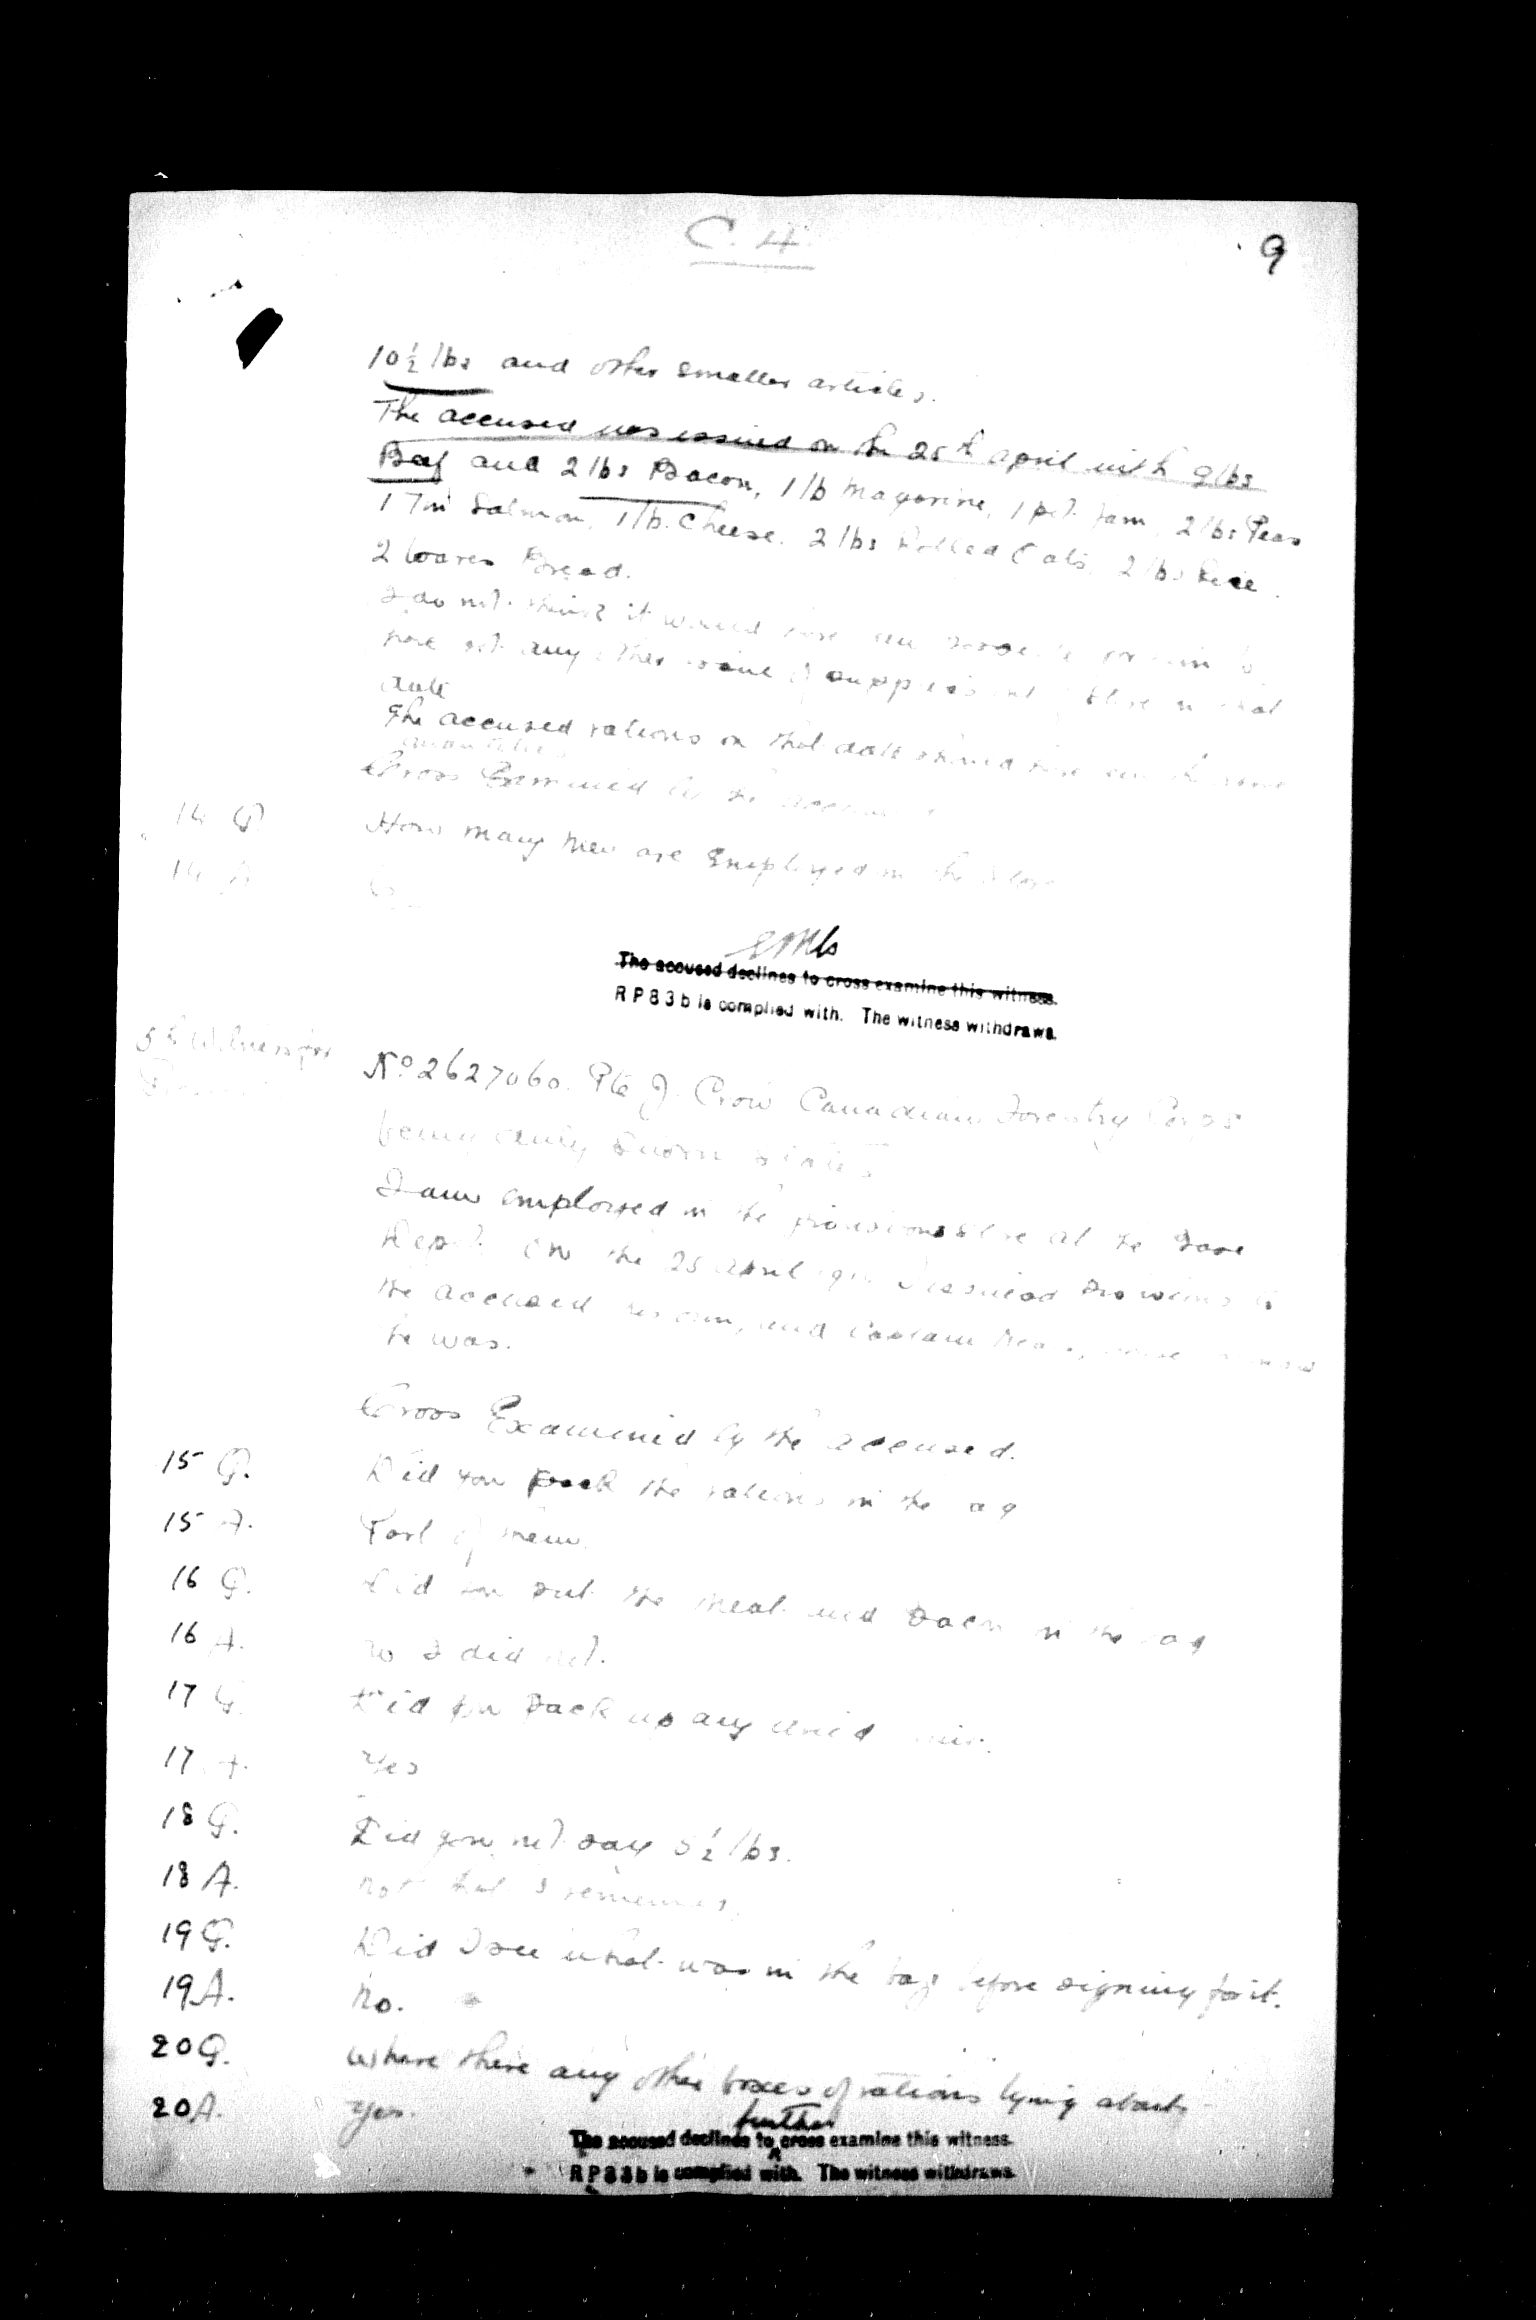 C. 4.
9
10½ lbs and other smaller articles.
The accused was issued on the 25th April with 9 lbs
Beef and 2 lbs Bacon, 1 lb Magarine, 1 pkt Jam, 2 lbs Peas
1 Tin Salmon, 1 lb. Cheese. 2 lbs Rolled Oats, 2 lbs Rice.
2 loaves Bread.
I do not think it would be possible for him to
have got any other of supplies on that
date
The accused rations on that date should the same
quantities
Cross Examined by the accused
14 Q. How many men are Employed in the Store
14 A.
The accused declines to cross examine this witness.
R P 8 3 b is complied with. The witness withdraws.
5th Witness for
No 2627060. Pte J. Crow Canadian Forestry Corps
being duly sworn states
I am employed in the provision store at the Base
Depot. On the 25 April I issued provisions to
the accused and Captain
he was.
Cross Examined by the accused.
15 Q. Did you pack the rations in the bag
15 A. Part of them.
16 Q. Did you put the meat and bacon in the bag
16 A. No I did not.
17 Q. Did you pack up any dried
17 A. Yes
18 Q. Did you not say 5½ lbs.
18 A. Not that I remember.
19 Q. Did I see what was in the bag before signing for it.
19 A. No.
20 Q. Where there any other boxes of rations lying about
20 A. Yes.
further
The accused declines to ^ cross examine this witness.
R P 8 3 b is complied with. The witness withdraws.